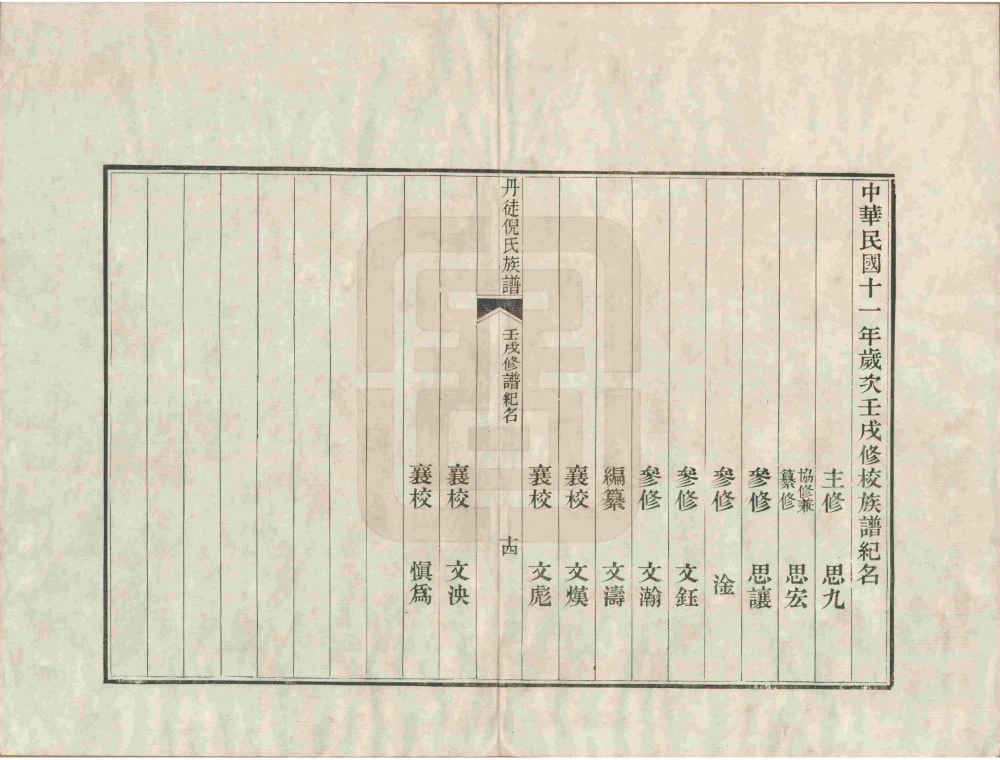 中華民國十一年歲次壬戌修校族譜紀名
主修 思九
協修兼纂修 思宏
參修 思讓
參修 淦
參修 文鈺
參修 文瀚
編纂 文濤
襄校 文熯
襄校 文彪
丹徒倪氏族譜 壬戌修譜紀名 十四
襄校 文泱
襄校 慎爲